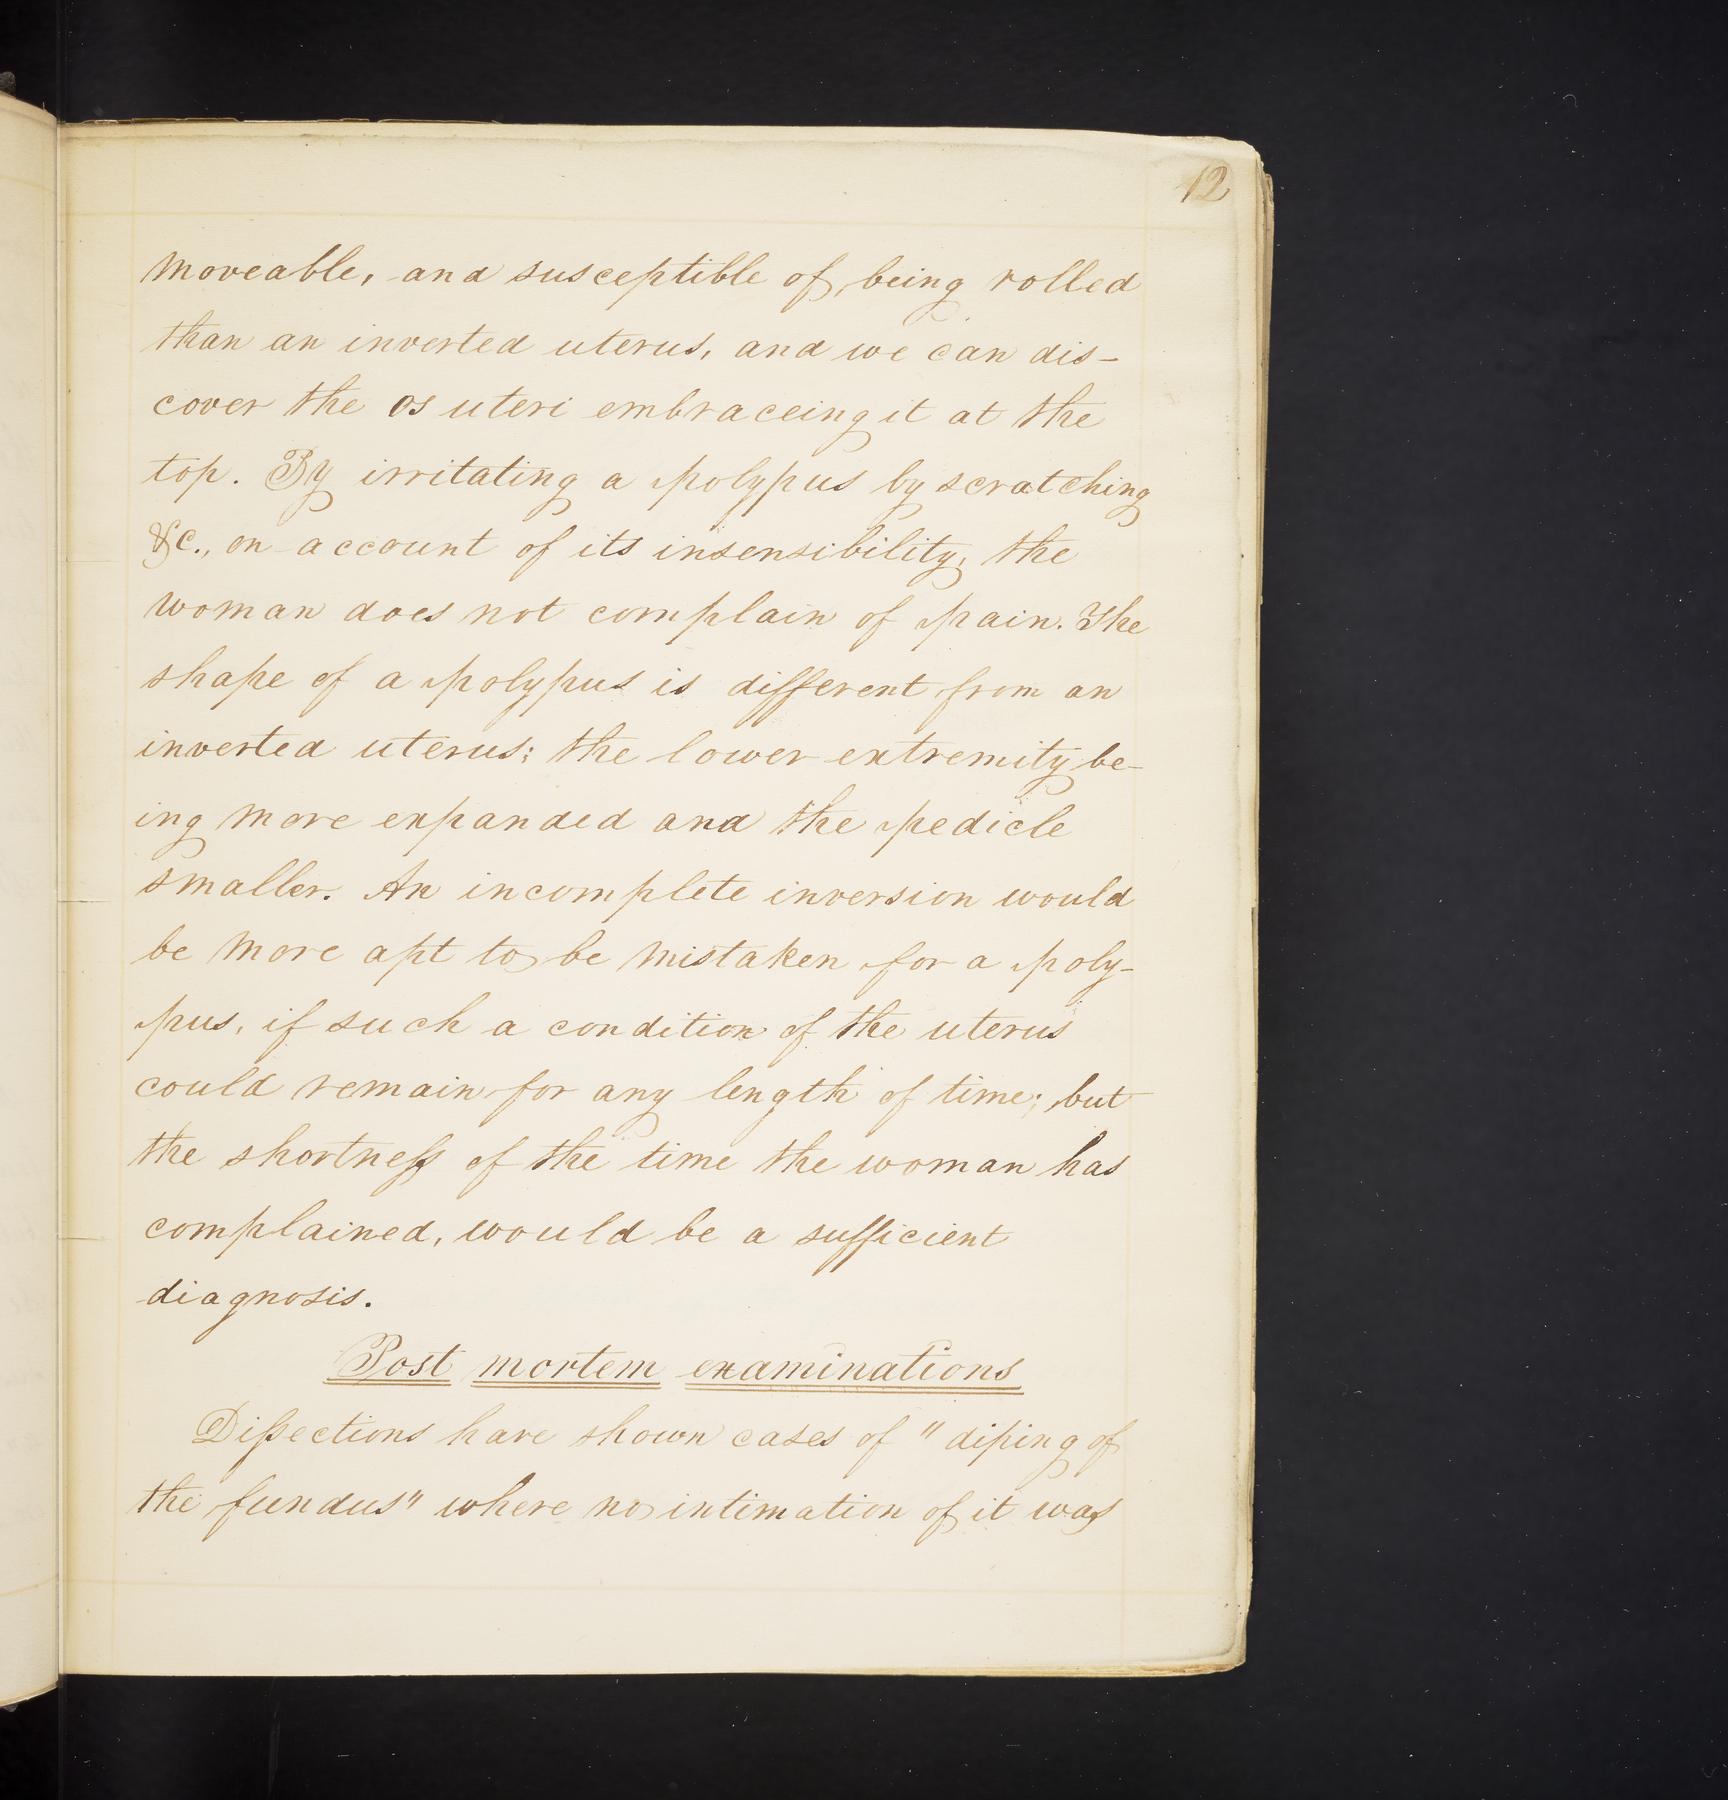 12
moveable, and susceptible of being rolled
than an inverted uterus, and we can dis-
cover the os uteri embraceing it at the
top. By irritating a polypus by scratching
&c., on account of its insensibility, the
woman does not complain of pain. The
shape of a polypus is different from an
inverted uterus; the lower extremity be-
ing more expanded and the pedicle
smaller. An incomplete inversion would
be more apt to be mistaken for a poly-
pus, if such a condition of the uterus
could remain for any length of time; but
the shortneſs of the time the woman has
complained, would be a sufficient
diagnosis.
Post mortem examinations
Diſsections have shown cases of "diping of
the fundus" where no intimation of it was